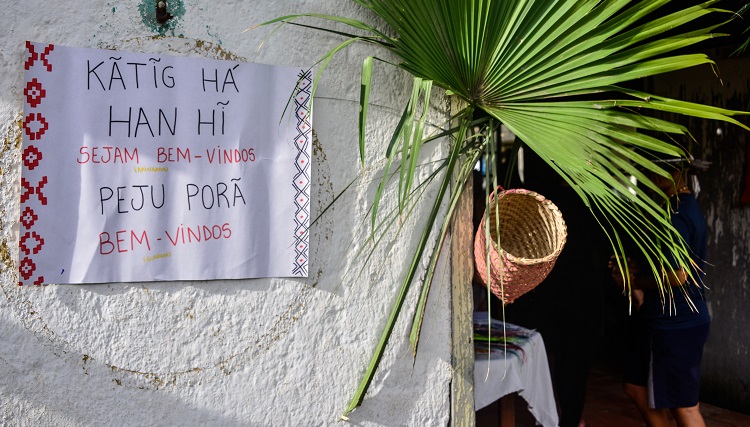 KÃTĨG HÁ
HAN HĨ
SEJAM BEM-VINDOS
PEJU PORÃ
BEM-VINDOS